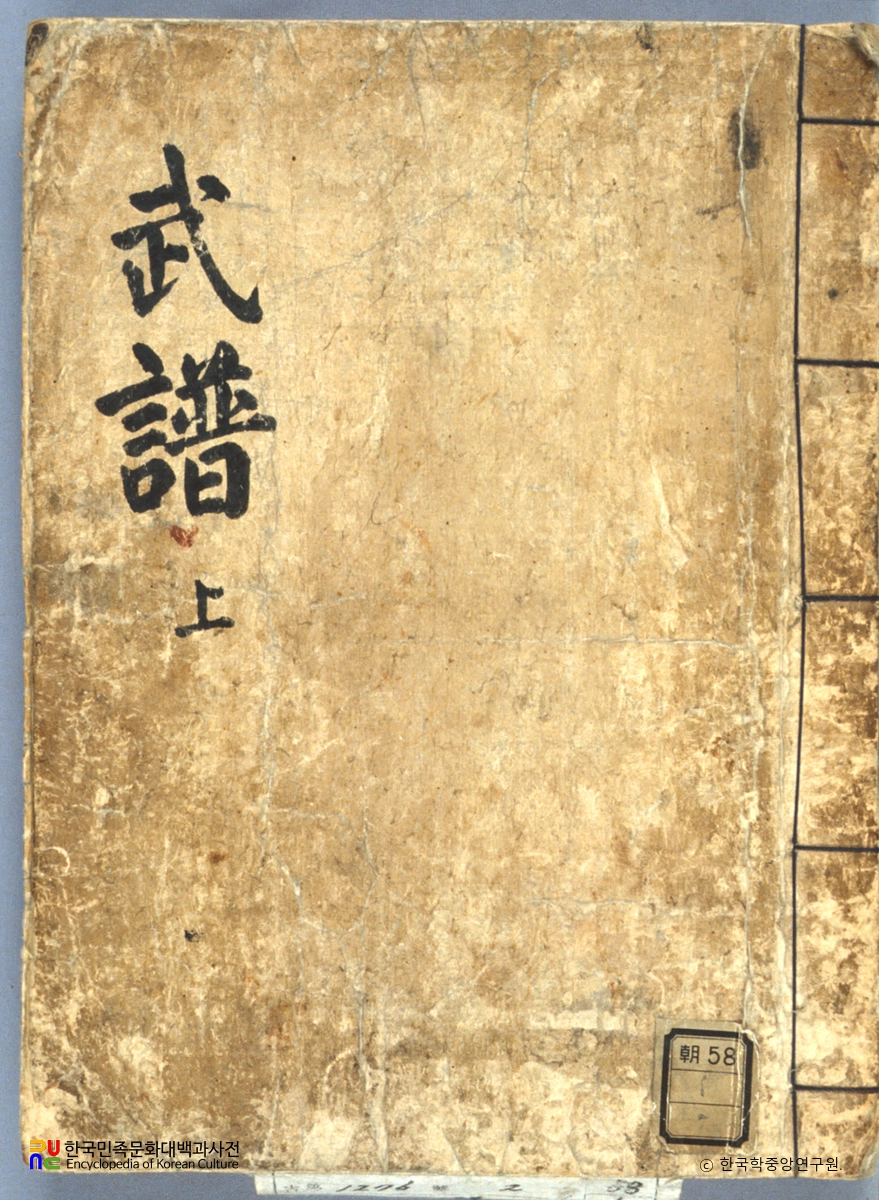 武譜
上
朝 58
한국민족문화대백과사전
Encyclopedia of Korean Culture
© 한국학중앙연구원.
1276 2 58